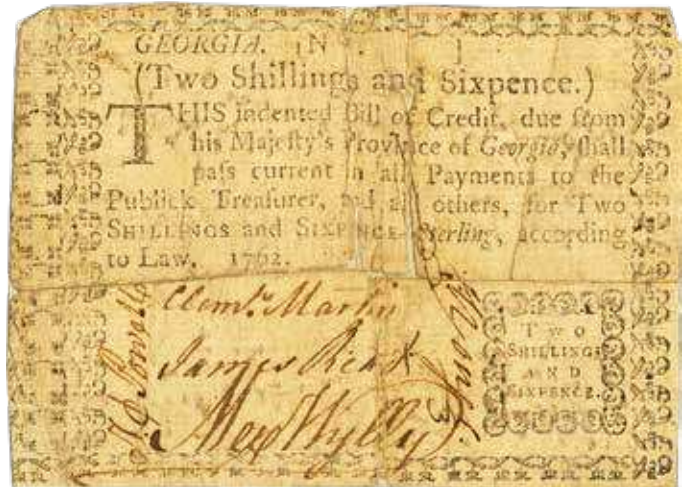 GEORGIA. N
(Two Shillings and Sixpence.)
THIS indented Bill of Credit, due from
his Majesty's Province of Georgia, shall
pass current in all Payments to the
Publick Treasurer, and all others, for Two
SHILLINGS and SIXPENCE Sterling, according
to Law. 1762.
Clemt. Martin
James Read
Alex Wylly
Powell
TWO
SHILLINGS
AND
SIXPENCE.